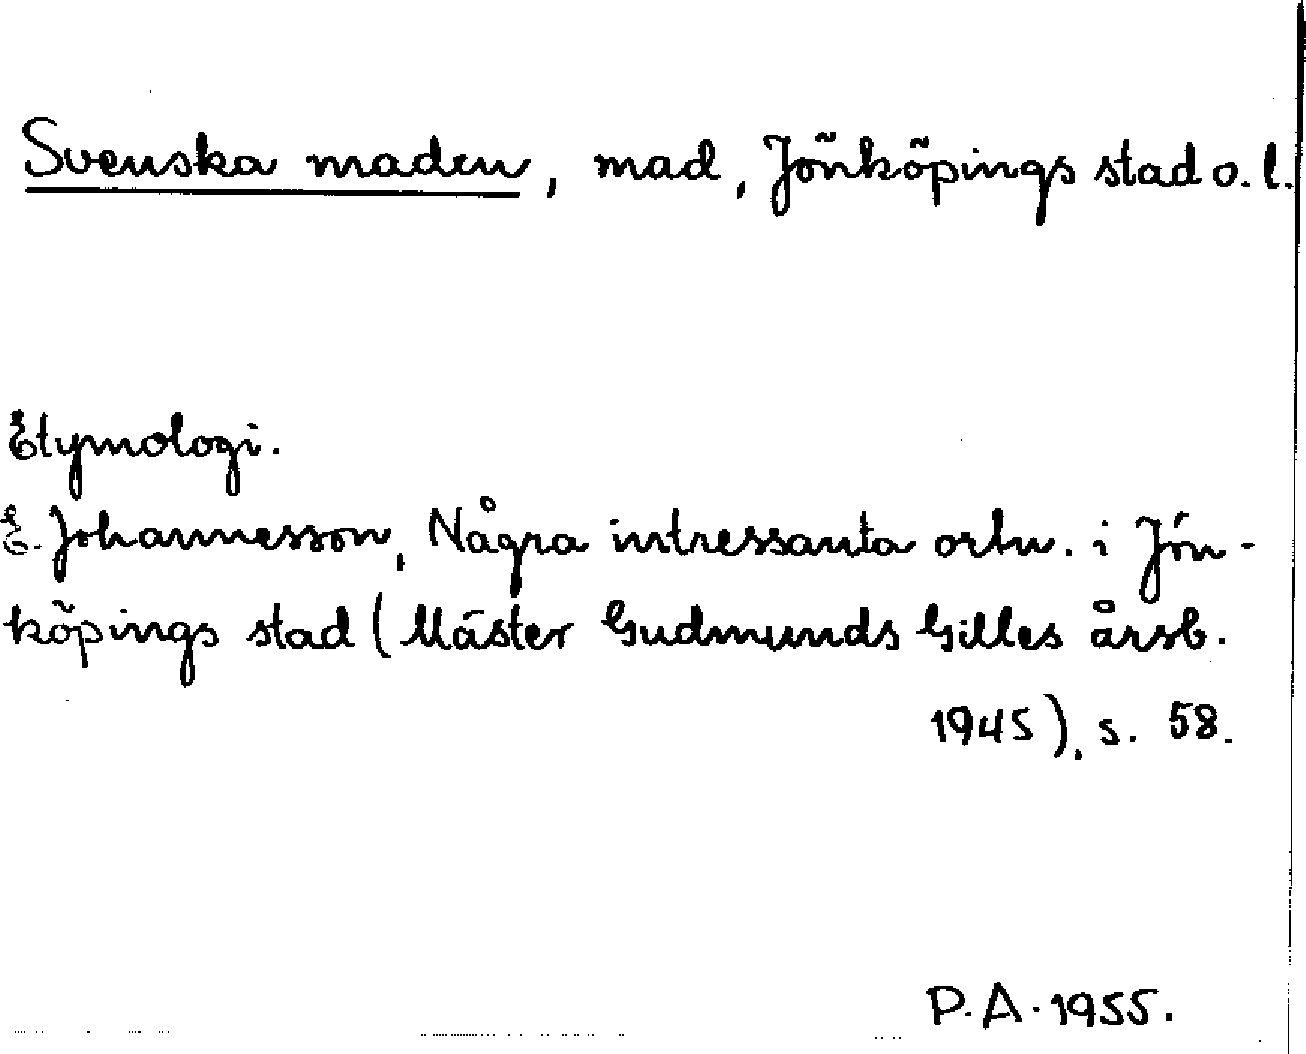 Svenska maden, mad, Jönköpings stad o. l.
Etymologi.
E. Johannesson, Några intressanta ortn. i Jön-
köpings stad (Mäster Gudmunds Gilles årsb.
1945), s. 58.
P.A. 1955.